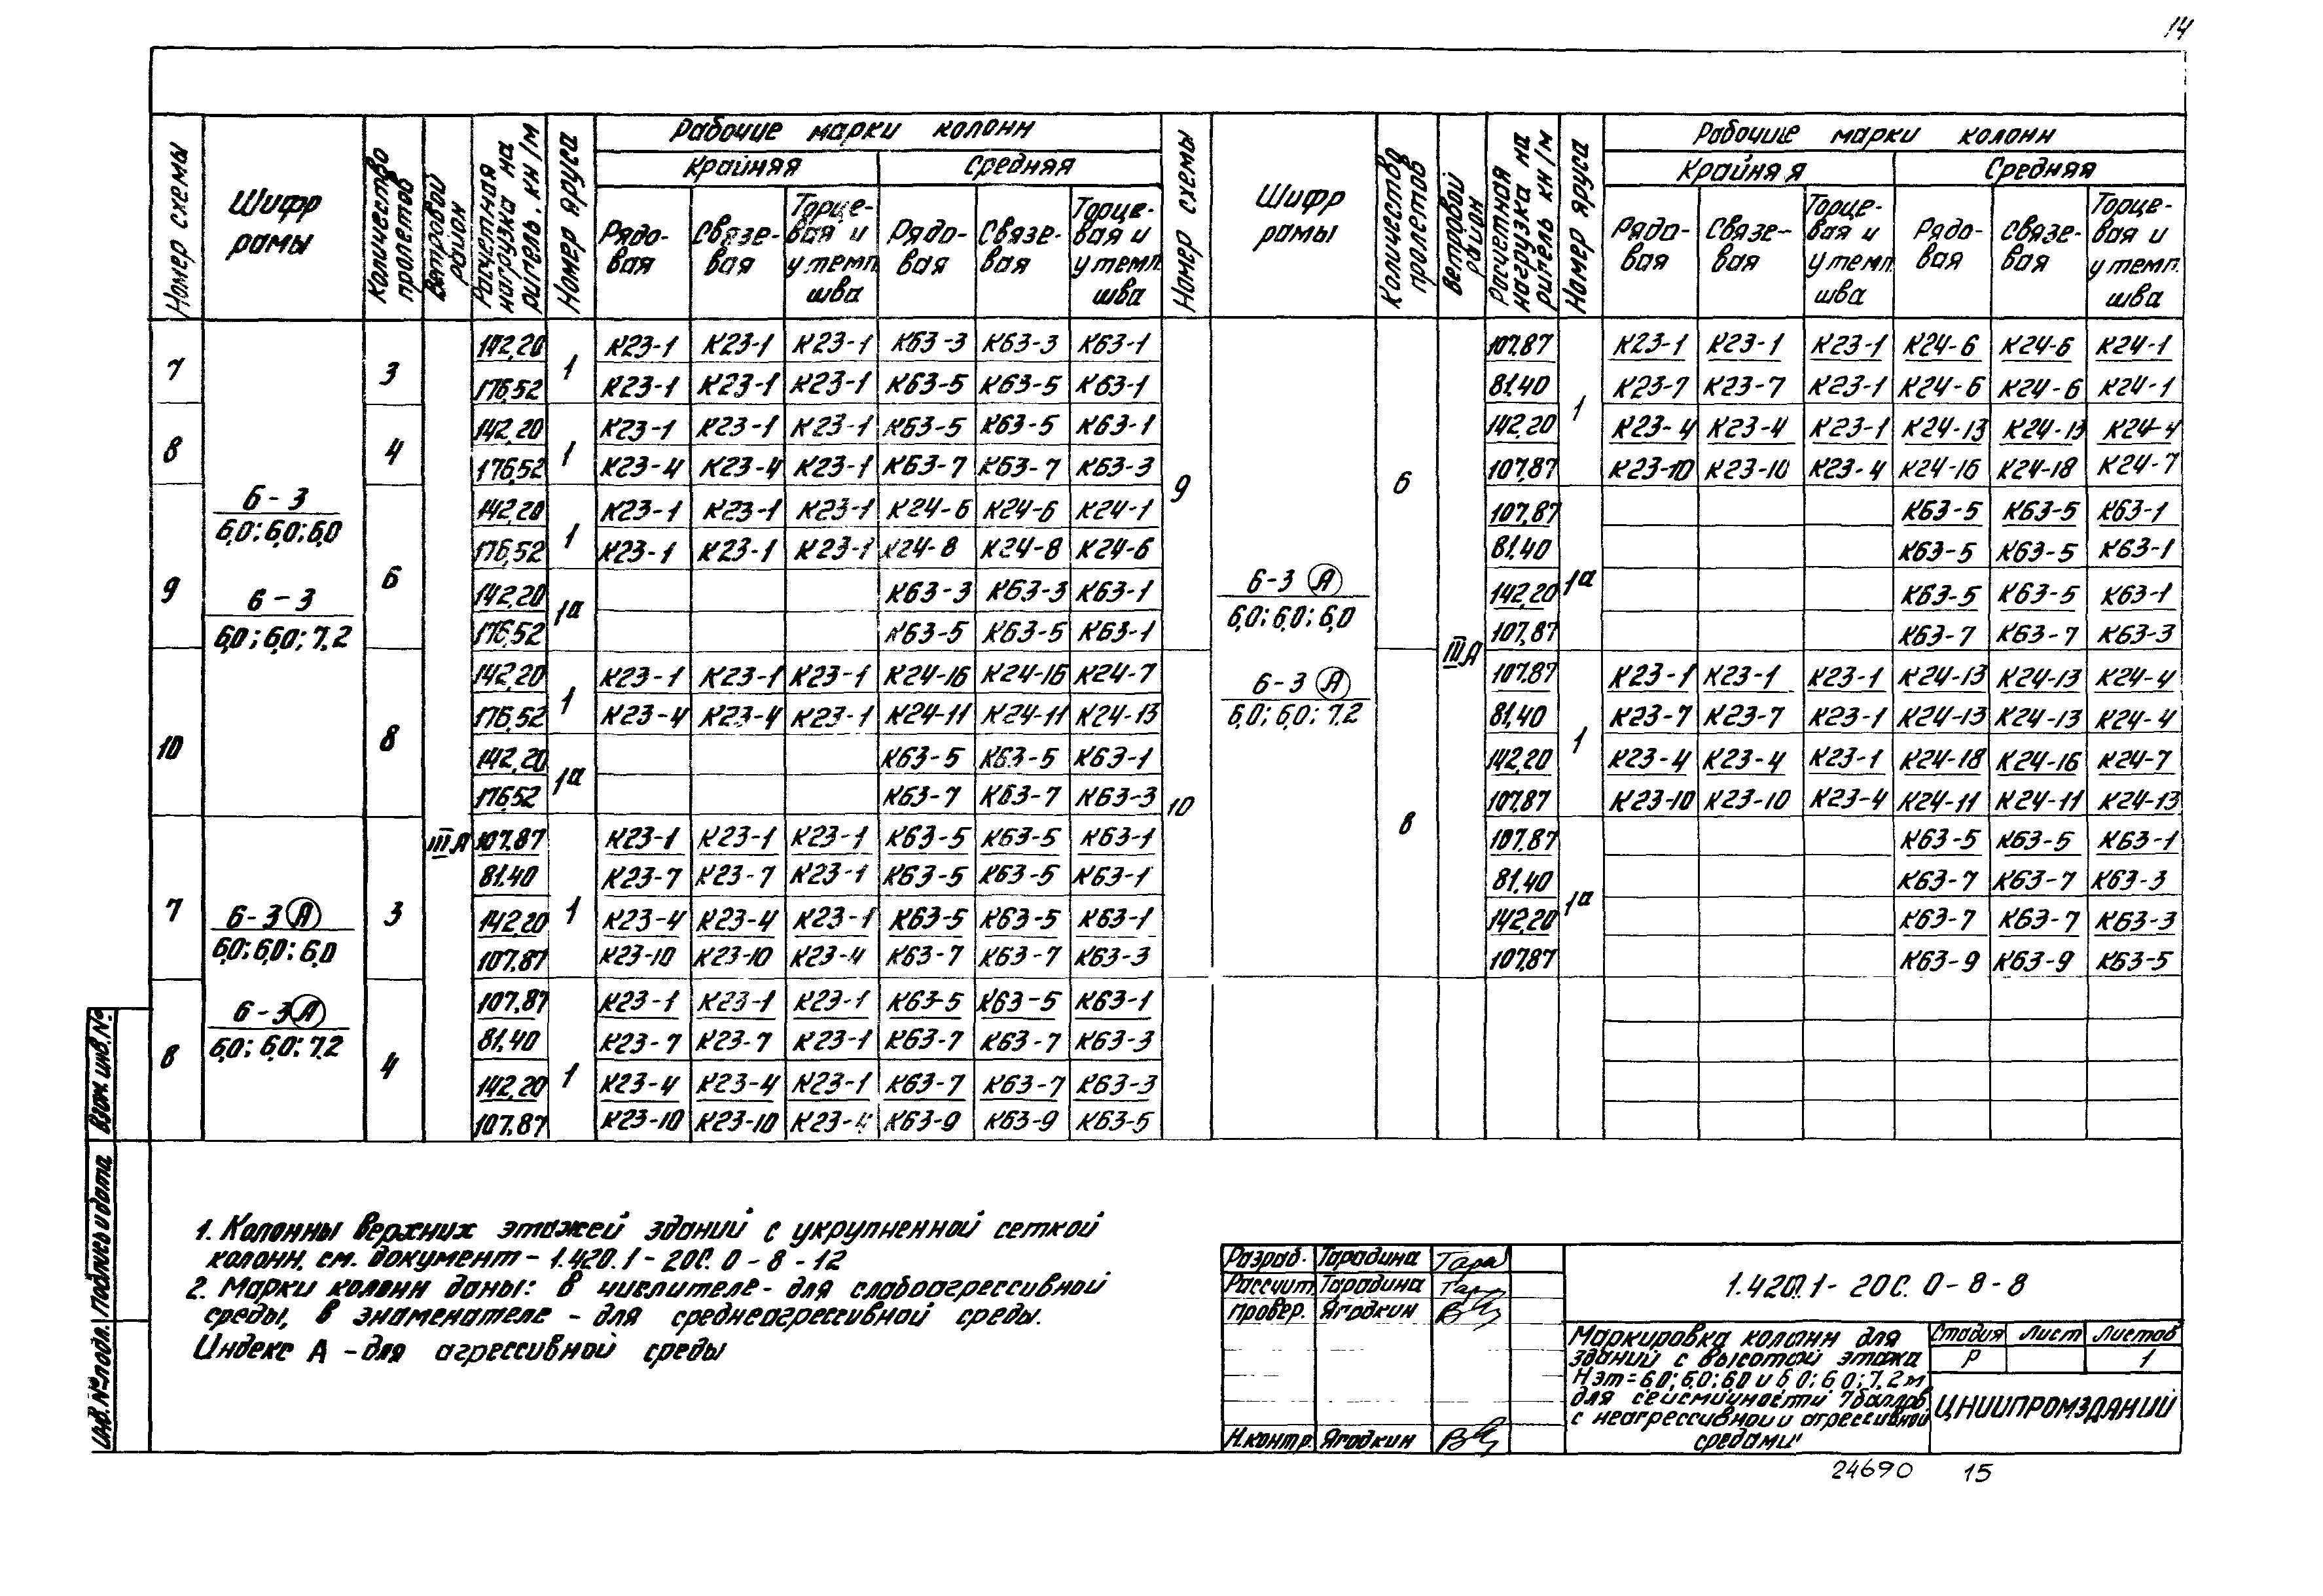 14
Номер схемы
Шифр рамы
Количество пролетов
Ветровой район
Расчетная нагрузка на ригель, кн/м
Номер яруса
Рабочие марки колонн
Крайняя
Средняя
Рядо-вая
Связе-вая
Торце-вая и у темп. шва
Рядо-вая
Связе-вая
Торце-вая и у темп. шва
7 3 142,20 1 К23-1 К23-1 К23-1 К63-3 К63-3 К63-1
176,52 К23-1 К23-1 К23-1 К63-5 К63-5 К63-1
8 4 142,20 1 К23-1 К23-1 К23-1 К63-5 К63-5 К63-1
176,52 К23-4 К23-4 К23-1 К63-7 К63-7 К63-3
6-3
6,0; 6,0; 6,0
6-3
6,0; 6,0; 7,2
9 6 142,20 1 К23-1 К23-1 К23-1 К24-6 К24-6 К24-1
176,52 К23-1 К23-1 К23-1 К24-8 К24-8 К24-6
142,20 1а К63-3 К63-3 К63-1
176,52 К63-5 К63-5 К63-1
10 8 142,20 1 К23-1 К23-1 К23-1 К24-16 К24-16 К24-7
176,52 К23-4 К23-4 К23-1 К24-11 К24-11 К24-13
142,20 1а К63-5 К63-5 К63-1
176,52 К63-7 К63-7 К63-3
IIIА
7 3 107,87 1 К23-1 К23-1 К23-1 К63-5 К63-5 К63-1
81,40 К23-7 К23-7 К23-1 К63-5 К63-5 К63-1
6-3 А
6,0; 6,0; 6,0
142,20 К23-4 К23-4 К23-1 К63-5 К63-5 К63-1
107,87 К23-10 К23-10 К23-4 К63-7 К63-7 К63-3
6-3 А
6,0; 6,0; 7,2
8 4 107,87 1 К23-1 К23-1 К23-1 К63-5 К63-5 К63-1
81,40 К23-7 К23-7 К23-1 К63-7 К63-7 К63-3
142,20 К23-4 К23-4 К23-1 К63-7 К63-7 К63-3
107,87 К23-10 К23-10 К23-4 К63-9 К63-9 К63-5
Номер схемы
Шифр рамы
Количество пролетов
Ветровой район
Расчетная нагрузка на ригель кн/м
Номер яруса
Рабочие марки колонн
Крайняя
Средняя
Рядо-вая
Связе-вая
Торце-вая и у темп. шва
Рядо-вая
Связе-вая
Торце-вая и у темп. шва
9 6 107,87 1 К23-1 К23-1 К23-1 К24-6 К24-6 К24-1
81,40 К23-7 К23-7 К23-1 К24-6 К24-6 К24-1
142,20 К23-4 К23-4 К23-1 К24-13 К24-13 К24-4
107,87 К23-10 К23-10 К23-4 К24-16 К24-18 К24-7
107,87 1а К63-5 К63-5 К63-1
81,40 К63-5 К63-5 К63-1
6-3 А
6,0; 6,0; 6,0
142,20 К63-5 К63-5 К63-1
107,87 К63-7 К63-7 К63-3
IIIА
6-3 А
6,0; 6,0; 7,2
10 8 107,87 1 К23-1 К23-1 К23-1 К24-13 К24-13 К24-4
81,40 К23-7 К23-7 К23-1 К24-13 К24-13 К24-4
142,20 К23-4 К23-4 К23-1 К24-18 К24-16 К24-7
107,87 К23-10 К23-10 К23-4 К24-11 К24-11 К24-13
107,87 1а К63-5 К63-5 К63-1
81,40 К63-7 К63-7 К63-3
142,20 К63-7 К63-7 К63-3
107,87 К63-9 К63-9 К63-5
1. Колонны верхних этажей зданий с укрупненной сеткой
колонн, см. документ - 1.420.1-20С. 0-8-12
2. Марки колонн даны: в числителе - для слабоагрессивной
среды, в знаменателе - для среднеагрессивной среды.
Индекс А - для агрессивной среды
Взам. инв. №
Подпись и дата
Инв. № подл.
Разраб. Тарадина Тара
Рассчит. Тарадина Тар
Провер. Ягодкин
Н.контр. Ягодкин
1.420.1-20С. 0-8-8
Маркировка колонн для
зданий с высотой этажа
Нэт=6,0; 6,0; 6,0 и 6,0; 6,0; 7,2м
для сейсмичности 7 баллов
с неагрессивной и агрессивной
средами
Стадия Лист Листов
Р 1
ЦНИИПРОМЗДАНИЙ
24690 15